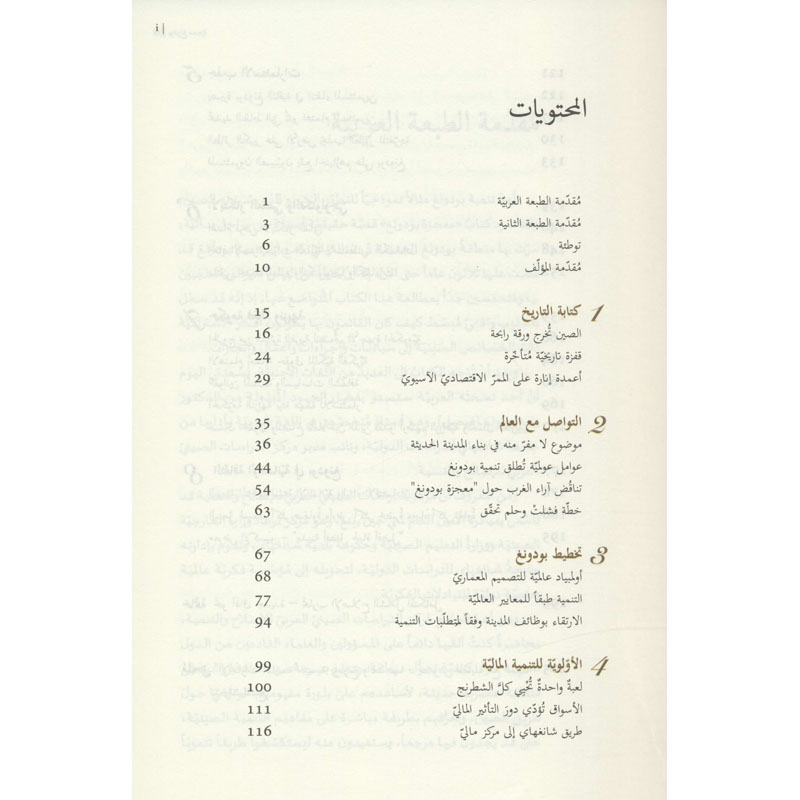 i |
المحتويات
مُقدّمة الطبعة العربيّة 1
مُقدّمة الطبعة الثانية 3
توطئة 6
مُقدّمة المؤلّف 10
1 كتابة التاريخ 15
الصين تُخرج ورقة رابحة 16
قفزة تاريخيّة مُتأخّرة 24
أعمدة إنارة على الممرّ الاقتصاديّ الآسيويّ 29
2 التواصل مع العالم 35
موضوع لا مفرّ منه في بناء المدينة الحديثة 36
عوامل عولميّة تُطلق تنمية بودونغ 44
تناقُض آراء الغرب حول "معجزة بودونغ" 54
خطّة فشلتْ وحلم تحقّق 63
3 تخطيط بودونغ 67
أولمبياد عالميّة للتصميم المعماريّ 68
التنمية طبقاً للمعايير العالميّة 77
الارتقاء بوظائف المدينة وفقاً لمتطلّبات التنمية 94
4 الأوّلويّة للتنمية الماليّة 99
لعبةٌ واحدةٌ تُحْيي كلَّ الشطرنج 100
الأسواق تُؤدّي دورَ التأثير الماليّ 111
طريق شانغهاي إلى مركز ماليّ 116